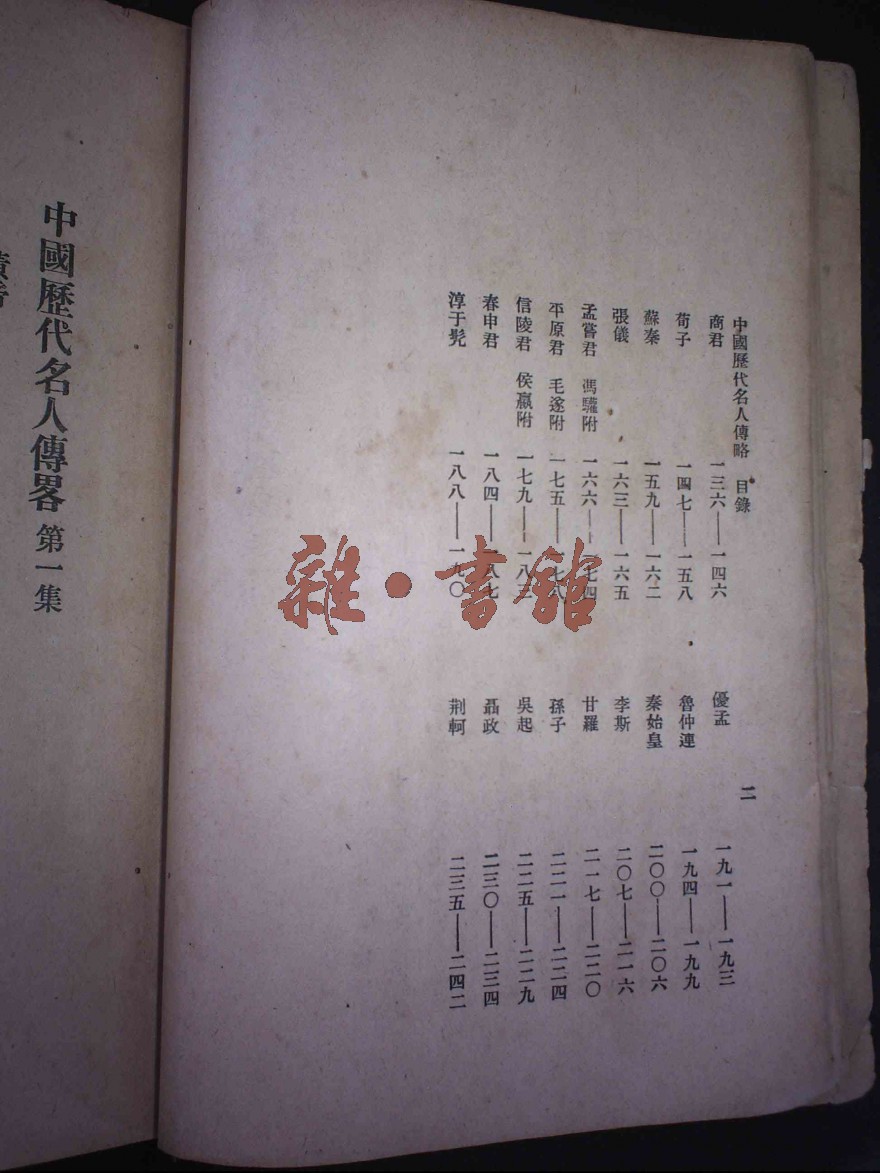 中國歷代名人傳略 目錄 二
商君 一三六——一四六
荀子 一四七——一五八
蘇秦 一五九——一六二
張儀 一六三——一六五
孟嘗君 馮驩附 一六六——一七四
平原君 毛遂附 一七五——一七八
信陵君 侯嬴附 一七九——一八三
春申君 一八四——一八七
淳于髡 一八八——一九〇
優孟 一九一——一九三
魯仲連 一九四——一九九
秦始皇 二〇〇——二〇六
李斯 二〇七——二一六
甘羅 二一七——二二〇
孫子 二二一——二二四
吳起 二二五——二二九
聶政 二三〇——二三四
荆軻 二三五——二四二
中國歷代名人傳畧 第一集
雜·書館